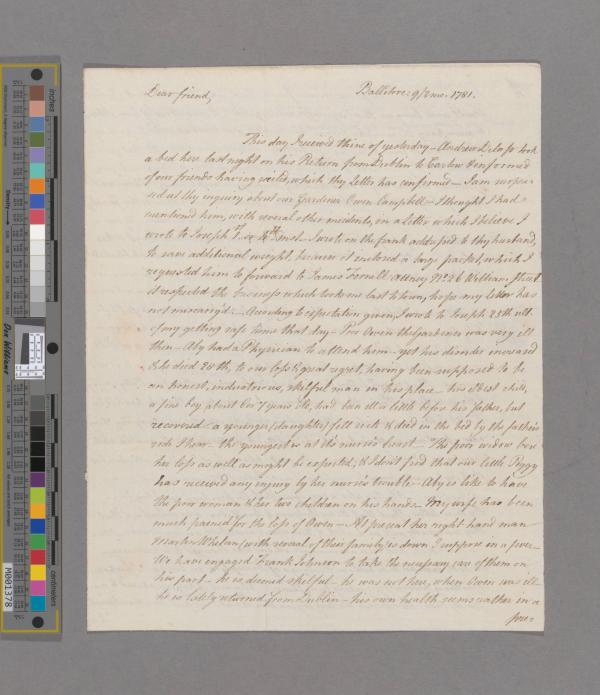 Dear friend,
Ballitore: 9/2mo. 1781.
This day I received thine of yesterday — Andrew Delap took
a bed here last night on his Return from Dublin to Carlow & informed
of our friends having sailed, which thy Letter has confirmed — I am surpri-
sed at thy enquiry about our Gardiner Owen Campbell — I thought I had
mentioned him, with several other incidents, in a Letter which I believe I
wrote to Joseph inst. I wrote on the frank address'd to thy husband,
to save additional weight, because it inclosed a large packet, which I
requested him to forward to James Forrell attney No. 26 William Street
it respected the business which took me last to town, hope my letter has
not miscarry'd. — According to expectation given, I wrote to Joseph 23th ult.
of my getting safe home that day — Poor Owen the Gardener was very ill
then — Aby had a Physician to attend him — yet his disorder increased
& he died 28th, to our loss & great regret, having been supposed to be
an honest, industrious, skilful man in his place — his eldest child,
a fine boy about 6 or 7 years old, had been ill a little before his father, but
recovered — a younger (daughter) fell sick & died in the bed by the father's
side I hear — the youngest is at its nurse's breast — The poor widow bore
her loss as well as might be expected, & I don't find that our little Peggy
has received any injury by her nurse's trouble — Aby is like to have
the poor woman & her two children on his hands — My wife has been
much pained for the loss of Owen — At present her right hand man
Martin Whelan (with several of their family) is down I suppose in a fever —
We have engaged Frank Johnson to take the necessary care of them on
his part — he is deemed skilful — he was not here, when Owen was ill
he is lately returned from Dublin — his own health seems rather in a
pre=
Inches
centimeters
Density
Don Williams
M001378